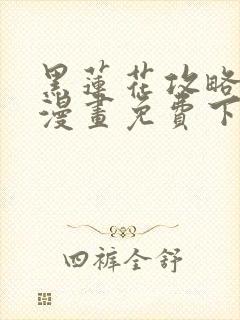 黑蓮花攻略
漫畫免費下
四裤全舒